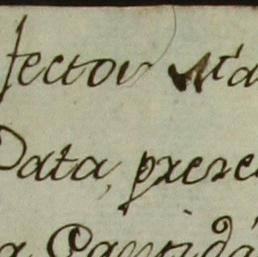 fector
Data, prese
a Cantidá